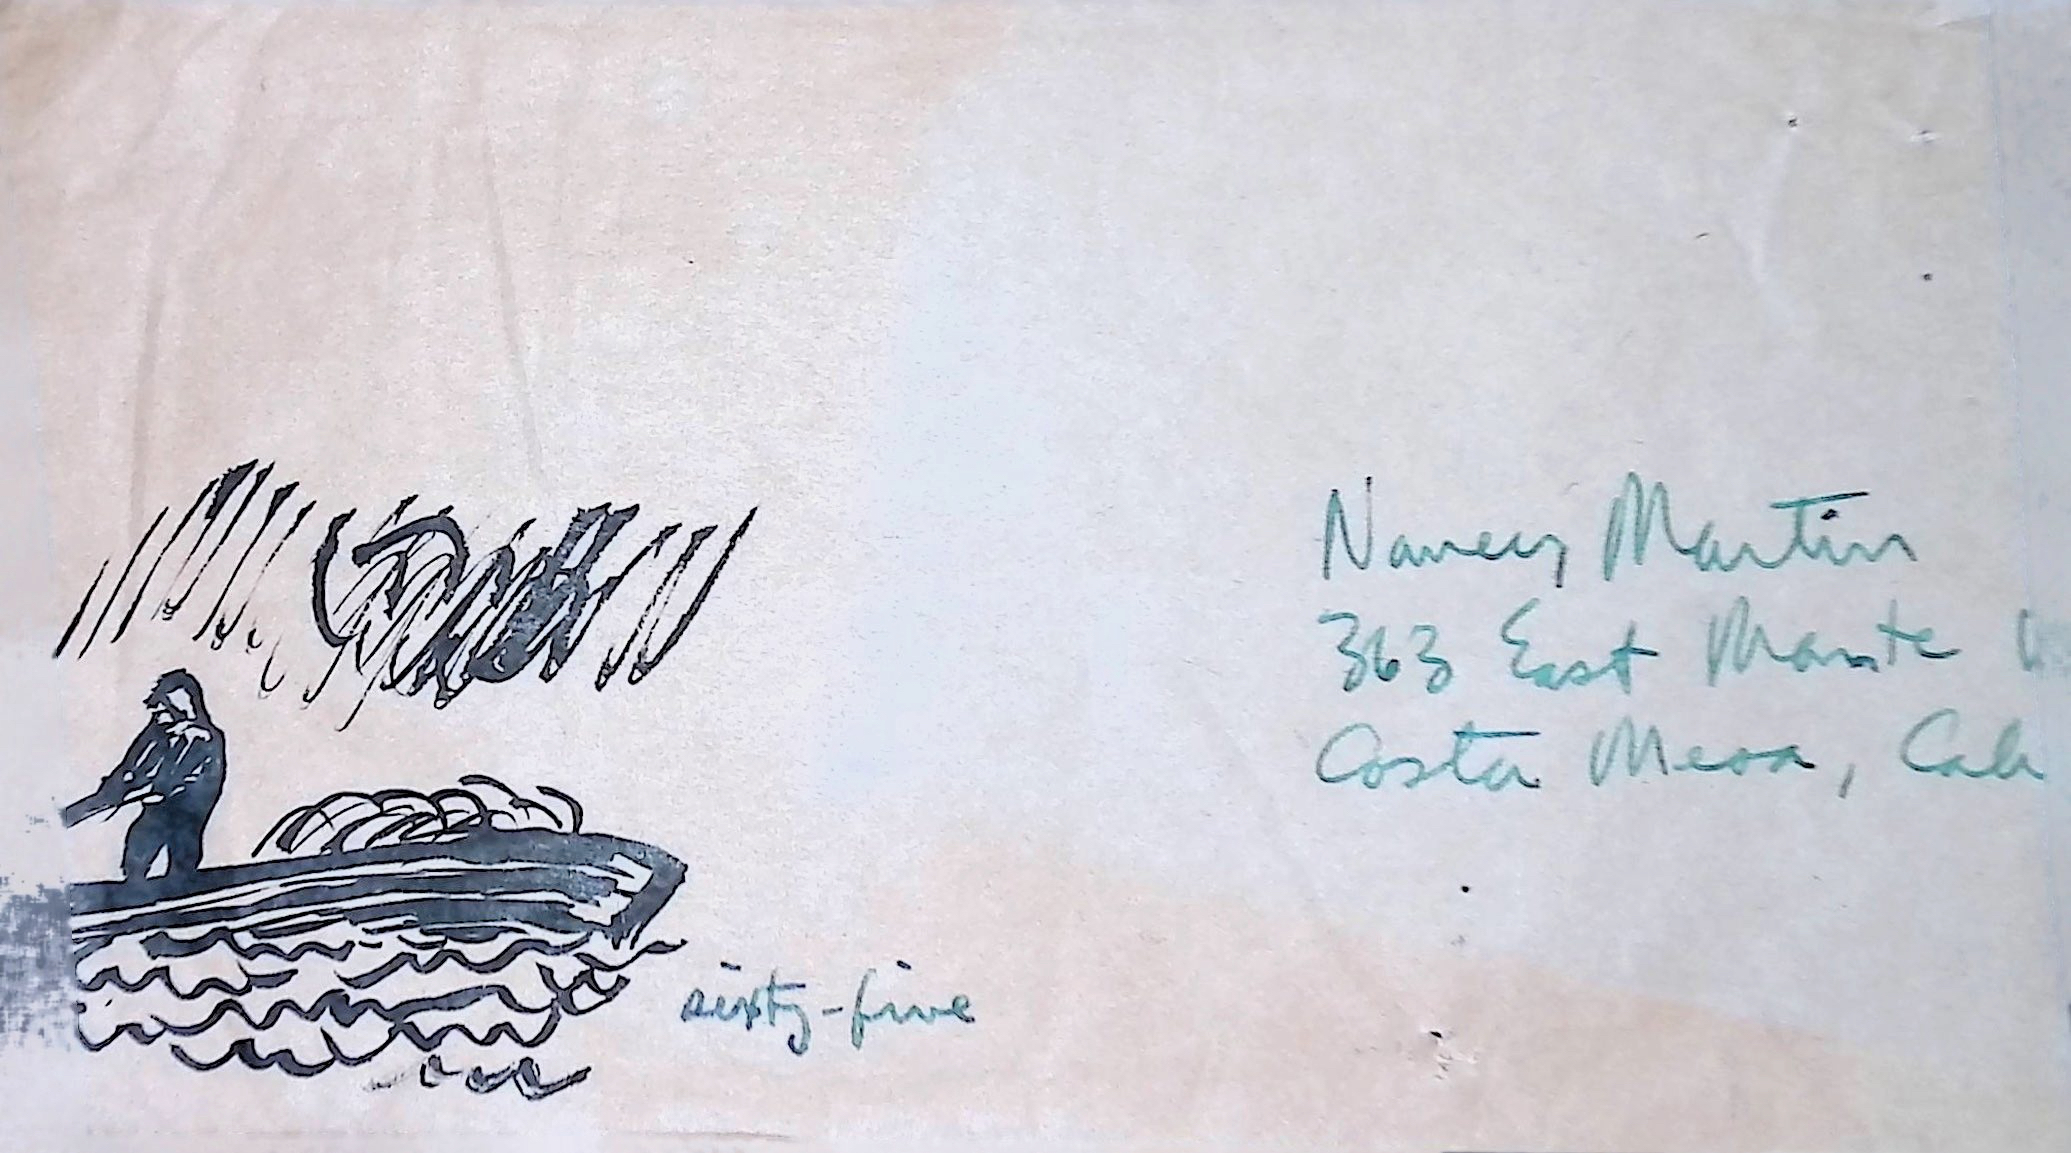 Nancy Martin
363 East Monte
Costa Mesa, Cali
sixty-five